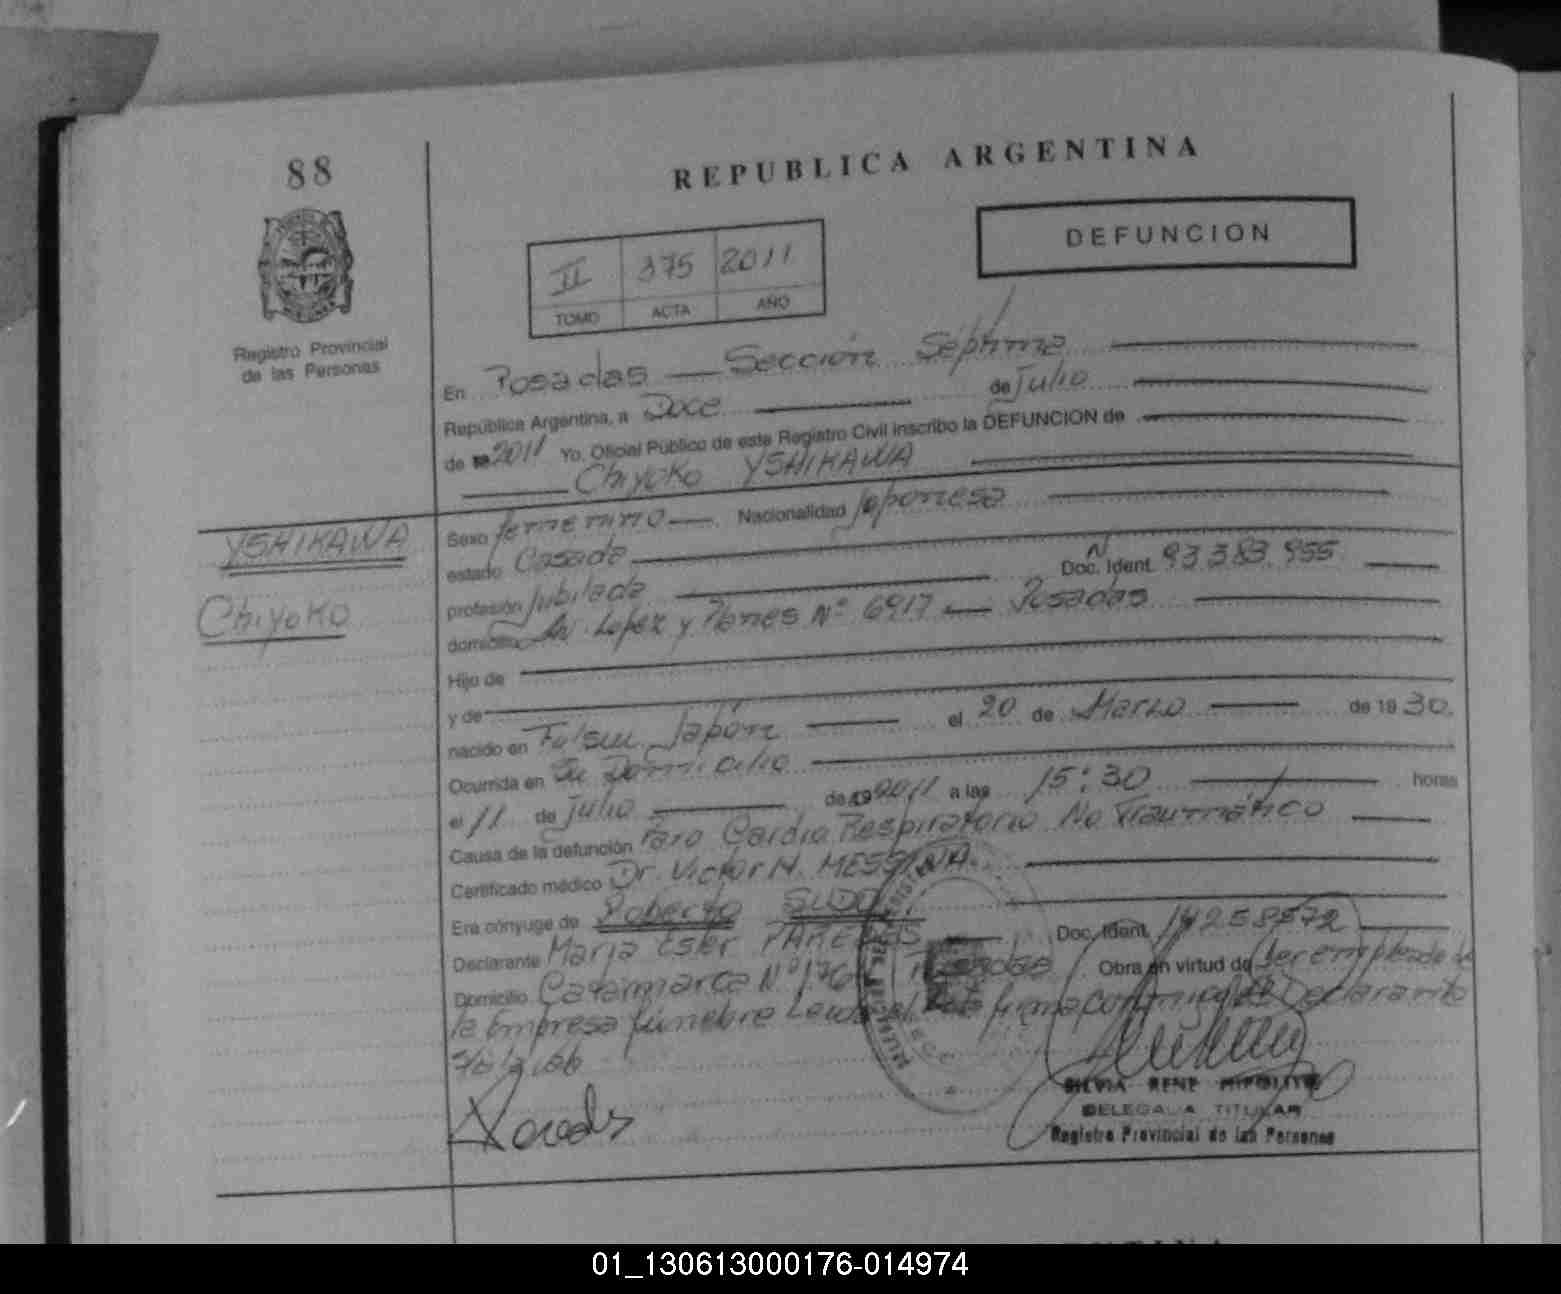 88
REPUBLICA ARGENTINA
Registro Provincial
de las Personas
II 375 2011
TOMO ACTA AÑO
DEFUNCION
En Posadas — Sección Séptima
República Argentina, a Doce de Julio
de 19 2011 Yo, Oficial Público de este Registro Civil inscribo la DEFUNCION de
Chiyoko YSHIKAWA
YSHIKAWA
Chiyoko
Sexo femenino Nacionalidad Japonesa
estado Casada
profesión Jubilada Doc. Ident. N 93.383.955
domicilio Av. Lopez y Planes Nº 6917 — Posadas
Hijo de
y de
nacido en Japón el 20 de Marzo de 1930.
Ocurrida en Su Domicilio
el 11 de Julio de 19 2011 a las 15:30 horas
Causa de la defunción Paro Cardio Respiratorio No Traumático
Certificado médico Dr. Victor H. MESSINA
Era cónyuge de Roberto SUDO
Declarante Maria Ester PAREDES Doc. Ident. 14258572
Domicilio Catamarca Nº Posadas Obra en virtud de Ser empleado de
la Empresa fúnebre firma conmigo el Declarante
SILVIA RENE HIPOLITO
DELEGADA TITULAR
Registro Provincial de las Personas
01_130613000176-014974